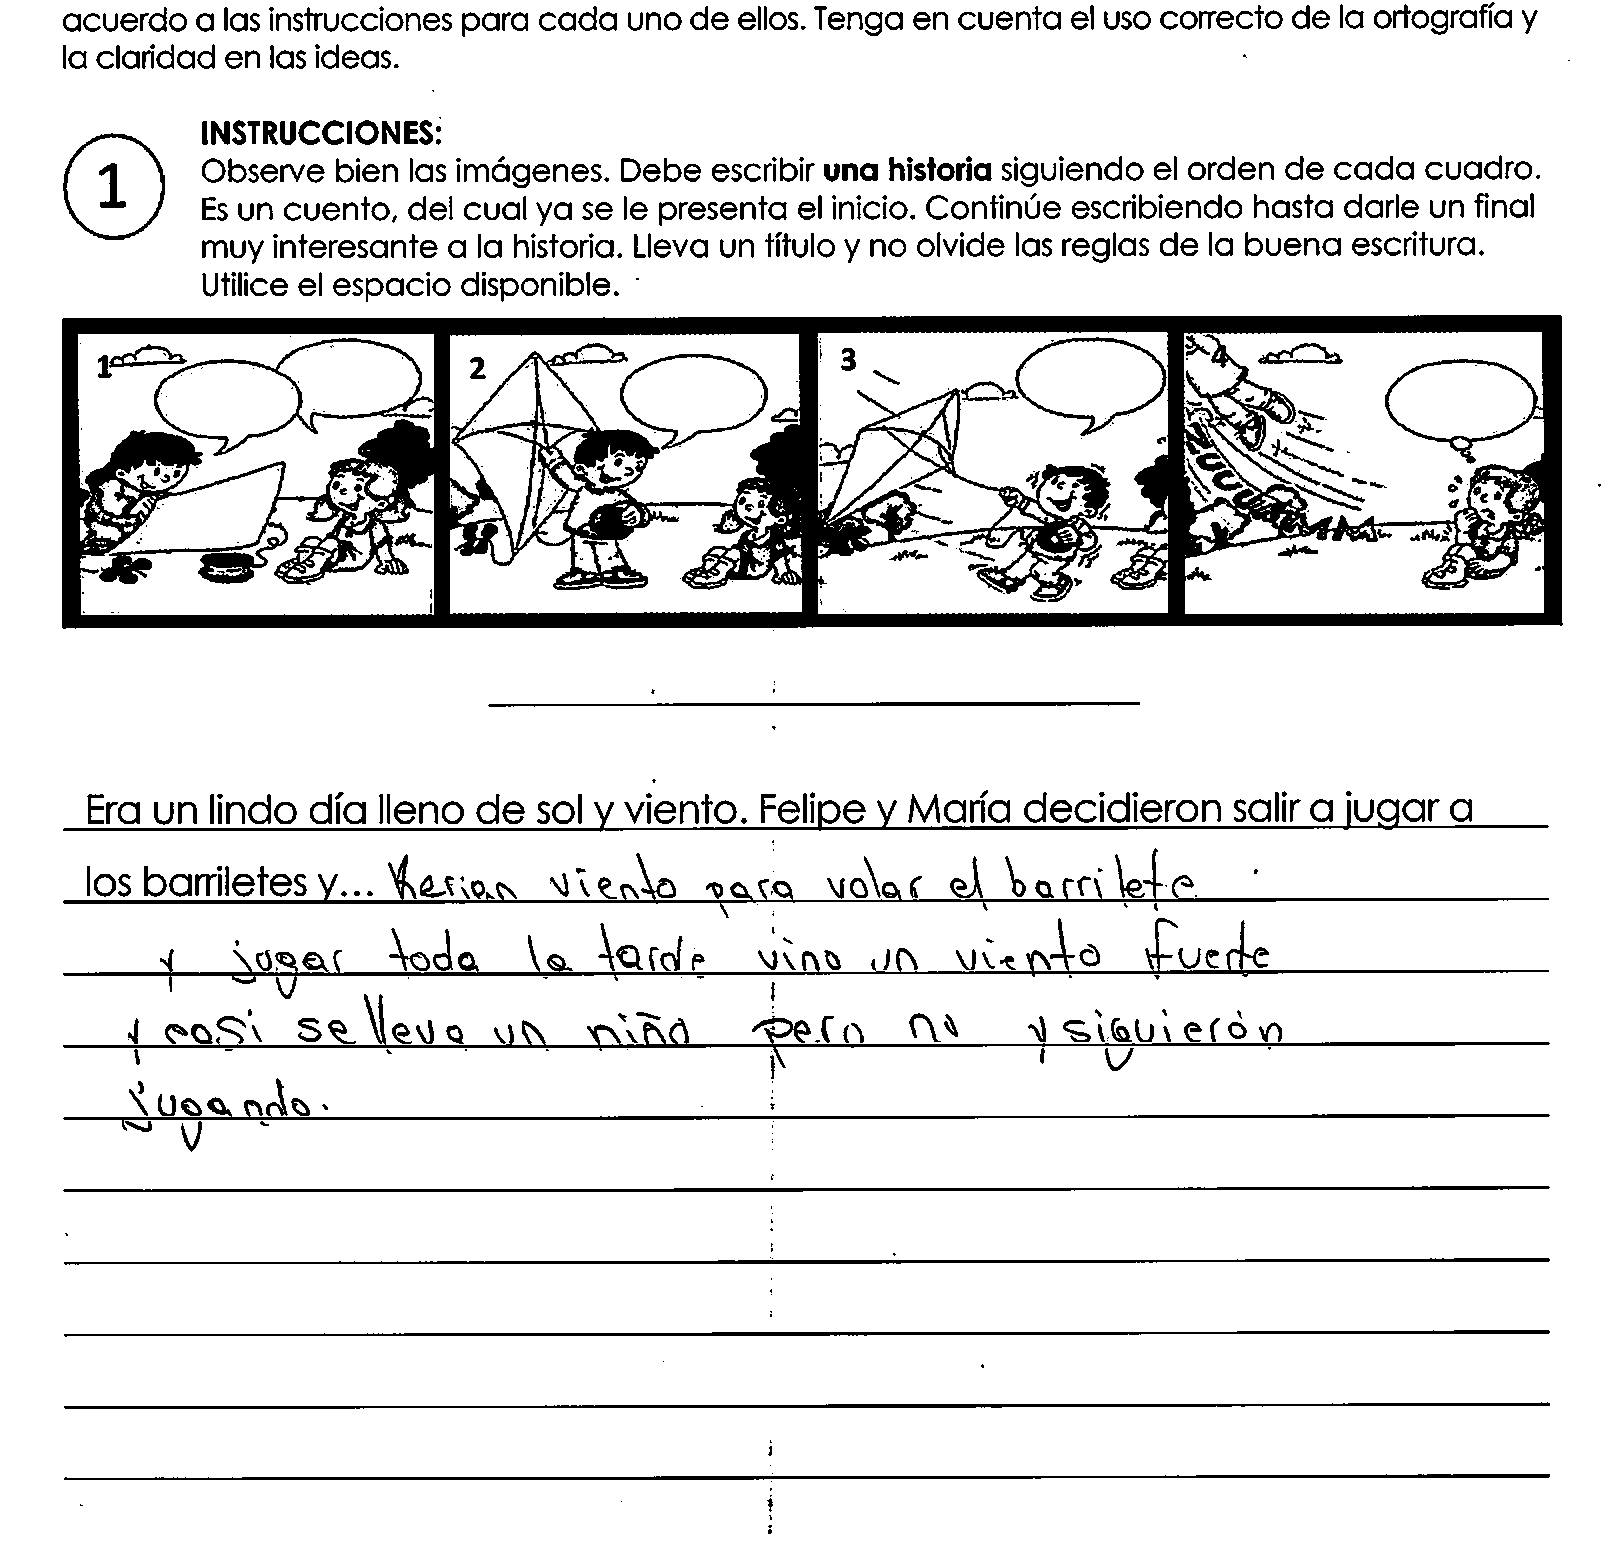 acuerdo a las instrucciones para cada uno de ellos. Tenga en cuenta el uso correcto de la ortografía y
la claridad en las ideas.
1
INSTRUCCIONES:
Observe bien las imágenes. Debe escribir una historia siguiendo el orden de cada cuadro.
Es un cuento, del cual ya se le presenta el inicio. Continúe escribiendo hasta darle un final
muy interesante a la historia. Lleva un título y no olvide las reglas de la buena escritura.
Utilice el espacio disponible.
1 2 3 4
Era un lindo día lleno de sol y viento. Felipe y María decidieron salir a jugar a
los barriletes y... kerian viento para volar el barrilete
y jugar toda la tarde vino un viento fuerte
y casi se lleva un niño pero no y siguierón
jugando.